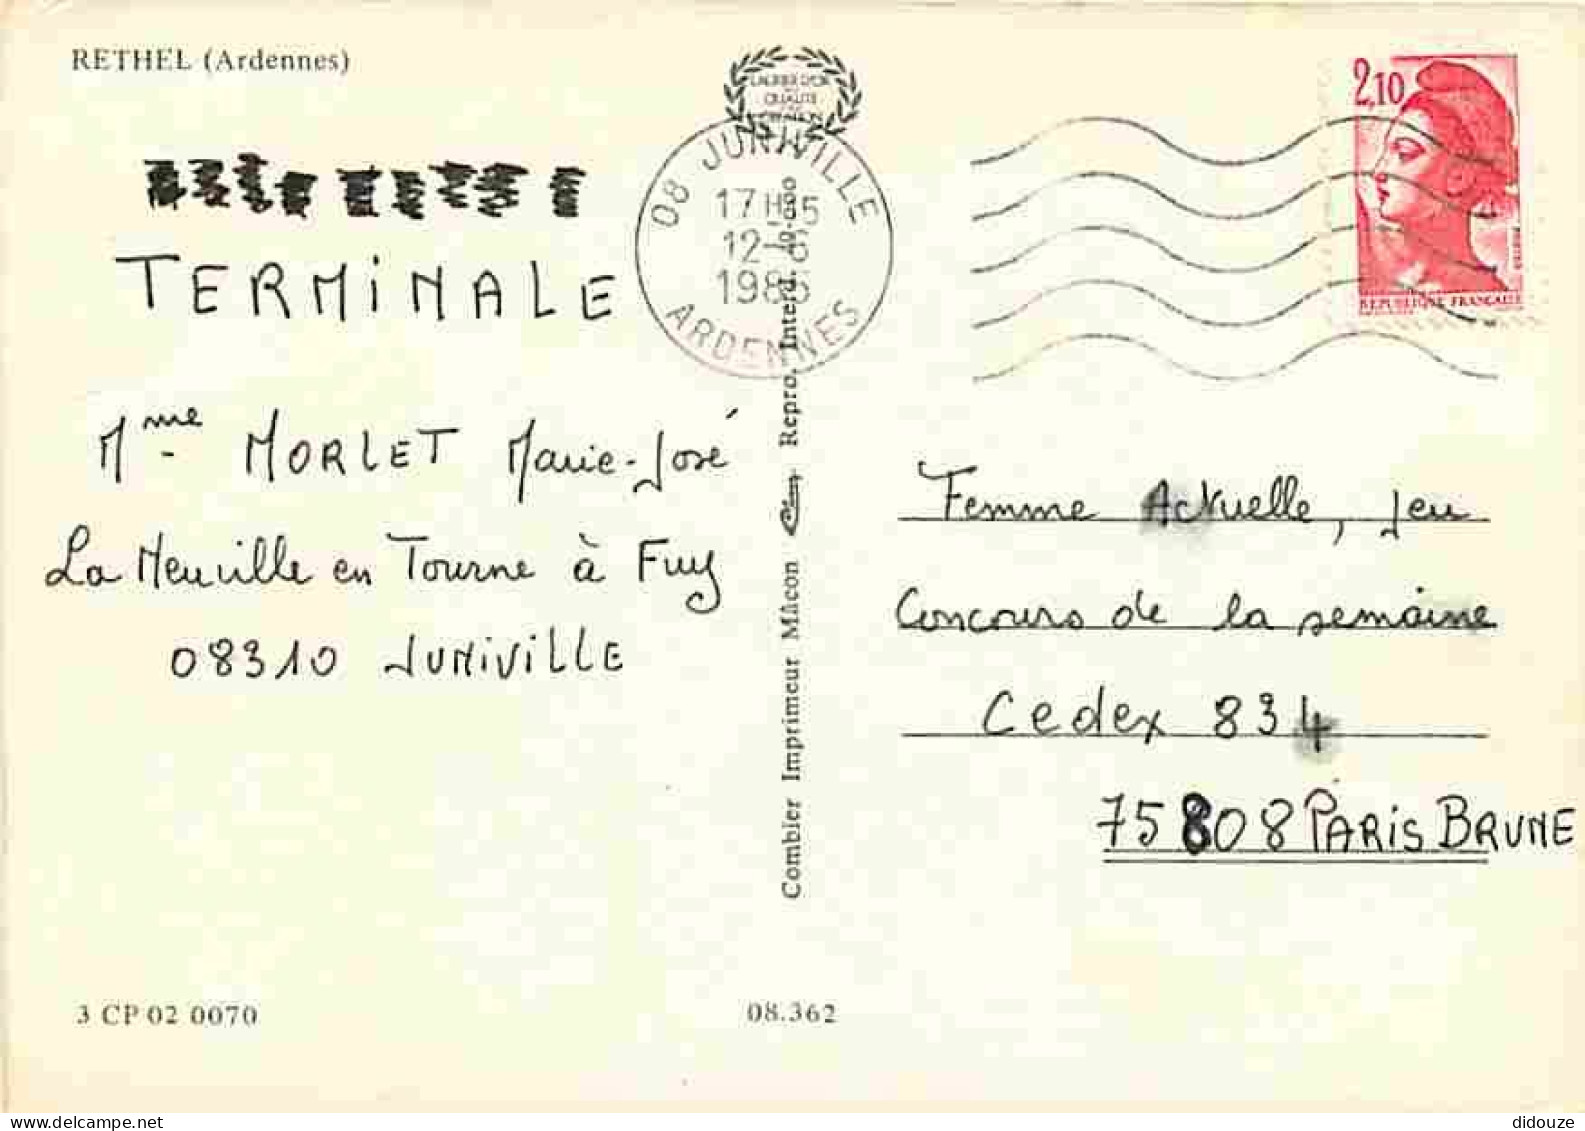 RETHEL (Ardennes)
LAURIER D'OR
QUALITÉ
CRÉATION
TERMINALE
Mme MORLET Marie-José
La Neuville en Tourne à Fuy
08310 JUNIVILLE
3 CP 02 0070
08 JUNIVILLE
17 H
12-6
1986
ARDENNES
Combier Imprimeur Mâcon Repro. Interd.
08.362
2,10
REPUBLIQUE FRANÇAISE
Femme Actuelle, Jeu
Concours de la semaine
Cedex 834
75808 PARIS BRUNE
delcampe.net
didouze